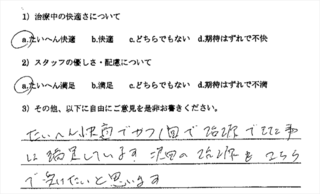 1) 治療中の快適さについて
a.たいへん快適 b.快適 c.どちらでもない d.期待はずれで不快
2) スタッフの優しさ・配慮について
a.たいへん満足 b.満足 c.どちらでもない d.期待はずれで不満
3) その他、以下に自由にご意見を是非お書きください。
たいへん快適でかつ1回で治療できた事
に満足しています 次回の治療もこちら
で受けたいと思います